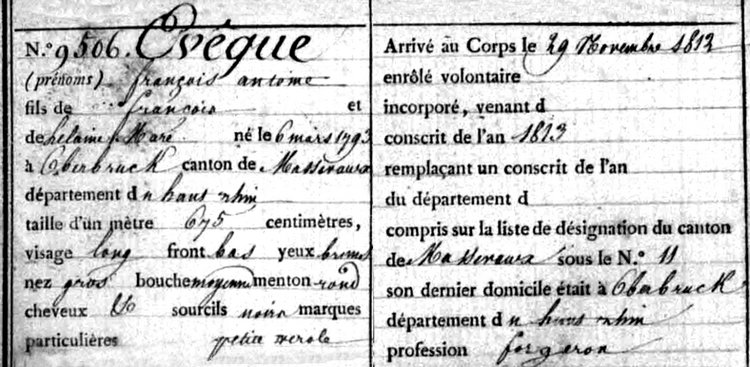 N.º 9506. Crégue
(prénoms) françois antoine
fils de françois et
de helaine Haré né le 6 mars 1793
à Oberbruck canton de Massevaux
département du haut rhin
taille d'un mètre 675 centimètres,
visage long front bas yeux bruns
nez gros bouche moyenne menton rond
cheveux & sourcils noirs marques
particulières petite verole
Arrivé au Corps le 29 Novembre 1812
enrôlé volontaire
incorporé, venant d
conscrit de l'an 1813
remplaçant un conscrit de l'an
du département d
compris sur la liste de désignation du canton
de Massevaux sous le N.º 11
son dernier domicile était à Oberbruck
département du haut rhin
profession forgeron